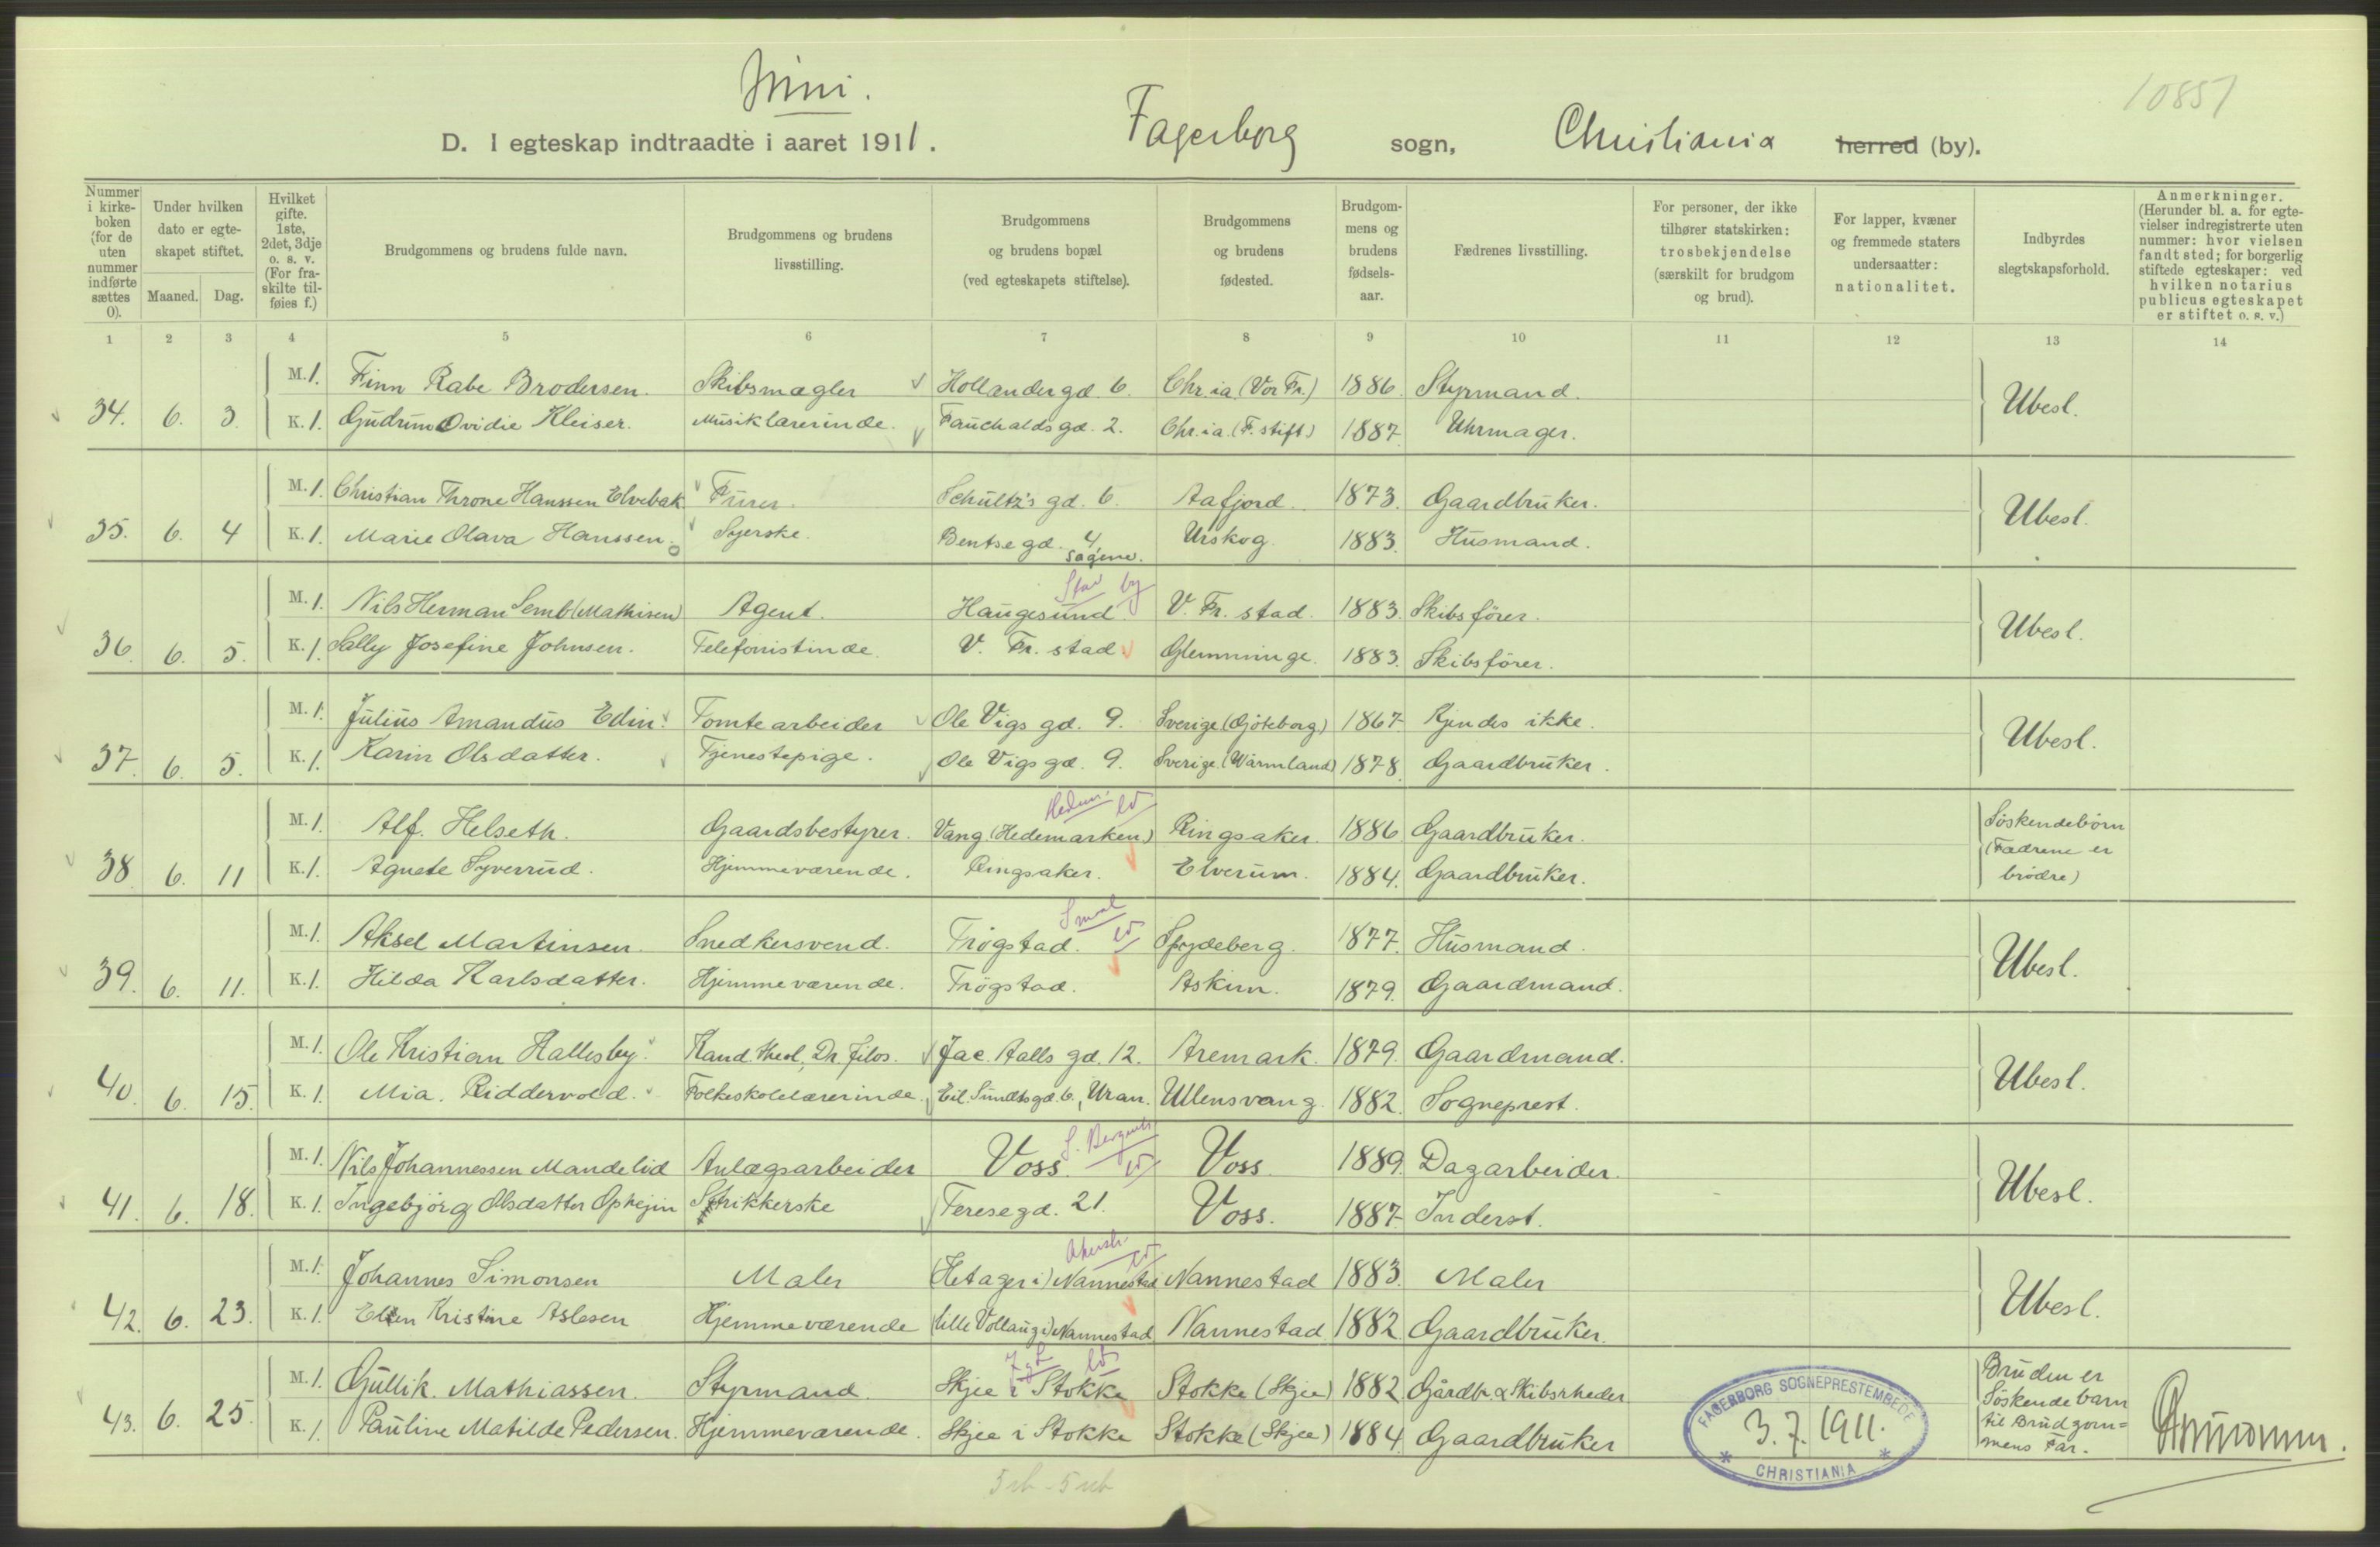 Juni.
10851
D. I egteskap indtraadte i aaret 1911. Fagerborg sogn, Christiania herred (by).
Nummer i kirkeboken (for de uten nummer indførte sættes 0). Under hvilken dato er egteskapet stiftet. Maaned. Dag. Hvilket gifte. 1ste, 2det, 3dje o. s. v. (For fraskilte tilføies f.) Brudgommens og brudens fulde navn. Brudgommens og brudens livsstilling. Brudgommens og brudens bopæl (ved egteskapets stiftelse). Brudgommens og brudens fødested. Brudgommens og brudens fødselsaar. Fædrenes livsstilling. For personer, der ikke tilhører statskirken: trosbekjendelse (særskilt for brudgom og brud). For lapper, kvæner og fremmede staters undersaatter: nationalitet. Indbyrdes slegtskapsforhold. Anmerkninger. (Herunder bl. a. for egtevielser indregistrerte uten nummer: hvor vielsen fandt sted; for borgerlig stiftede egteskaper: ved hvilken notarius publicus egteskapet er stiftet o. s. v.)
1 2 3 4 5 6 7 8 9 10 11 12 13 14
M. 1. Finn Rabe Brodersen. Skibsmægler Hollændergd. 6. Chr.ia (Vor Fr.) 1886. Styrmand.
34. 6. 3. K. 1. Gudrun Ovidie Kleiser. Musiklærerinde. Fauchaldsgd. 2. Chr.ia (F. stift) 1887. Uhrmager. Ubesl.
M. 1. Christian Throne Hanssen Elvebak Furer. Schultz's gd. 6. Aafjord. 1873. Gaardbruker.
35. 6. 4 K. 1. Marie Olava Hanssen. Syerske. Bentsegd. 4, Sagene. Urskog 1883. Husmand. Ubesl.
Stav by
M. 1. Nils Herman Semb (Mathisen) Agent. Haugesund V. Fr. stad. 1883. Skibsfører.
36. 6. 5. K. 1. Sally Josefine Johnsen. Telefonistinde. V. Fr. stad Glemminge. 1883. Skibsfører. Ubesl.
M. 1. Julius Amandus Edin. Tomtearbeider Ole Vigs gd. 9. Sverige (Gjöteborg) 1867. Kjendes ikke.
37. 6. 5. K. 1. Karin Olsdatter. Tjenestepige. Ole Vigs gd. 9. Sverige (Wärmland) 1878. Gaardbruker. Ubesl.
Hedem. ld
M. 1. Alf. Helseth. Gaardsbestyrer. Vang (Hedemarken) Ringsaker. 1886. Gaardbruker.
38 6. 11 K. 1. Agnete Syverrud. Hjemmeværende. Ringsaker. Elverum. 1884. Gaardbruker. Söskendebörn (Fædrene er brødre)
Smaal ld
M. 1. Aksel Martinsen. Snedkersvend. Trøgstad. Spydeberg. 1877. Husmand.
39. 6. 11. K. 1. Hilda Karlsdatter. Hjemmeværende. Trögstad. Askim. 1879. Gaardmand. Ubesl.
M. 1. Ole Kristian Hallesby. Kand. theol, Dr filos. Jac. Aalls gd. 12. Aremark. 1879. Gaardmand.
40 6. 15. K. 1. Mia. Riddervold. Folkeskolelærerinde. Eil. Sundtsgd. 6, Uran. Ullensvang. 1882. Sogneprest. Ubesl.
S. Bergenh. ld
M. 1. Nils Johannessen Mandelid Anlægsarbeider Voss. Voss. 1889. Dagarbeider.
41. 6. 18. K. 1. Ingebjörg Olsdatter Ophejm Strikkerske Teresegd. 21. Voss. 1887. Inderst. Ubesl.
Akersh. ld
M. 1. Johannes Simonsen Maler (Hetager i) Nannestad Nannestad 1883. Maler
42. 6. 23. K. 1. Ellen Kristine Aslesen Hjemmeværende (lille Vollaug i) Nannestad Nannestad 1882. Gaardbruker. Ubesl.
ld
M. 1. Gullik. Mathiassen. Styrmand. Skjee i Stokke Stokke (Skjee) 1882 Gårdb. & Skibsrheder
43. 6. 25. K. 1. Pauline Matilde Pedersen. Hjemmeværende. Skjee i Stokke Stokke (Skjee) 1884. Gaardbruker Bruden er Söskendebarn til Brudgommens Far.
FAGERBORG SOGNEPRESTEMBEDE
3.7.1911.
CHRISTIANIA